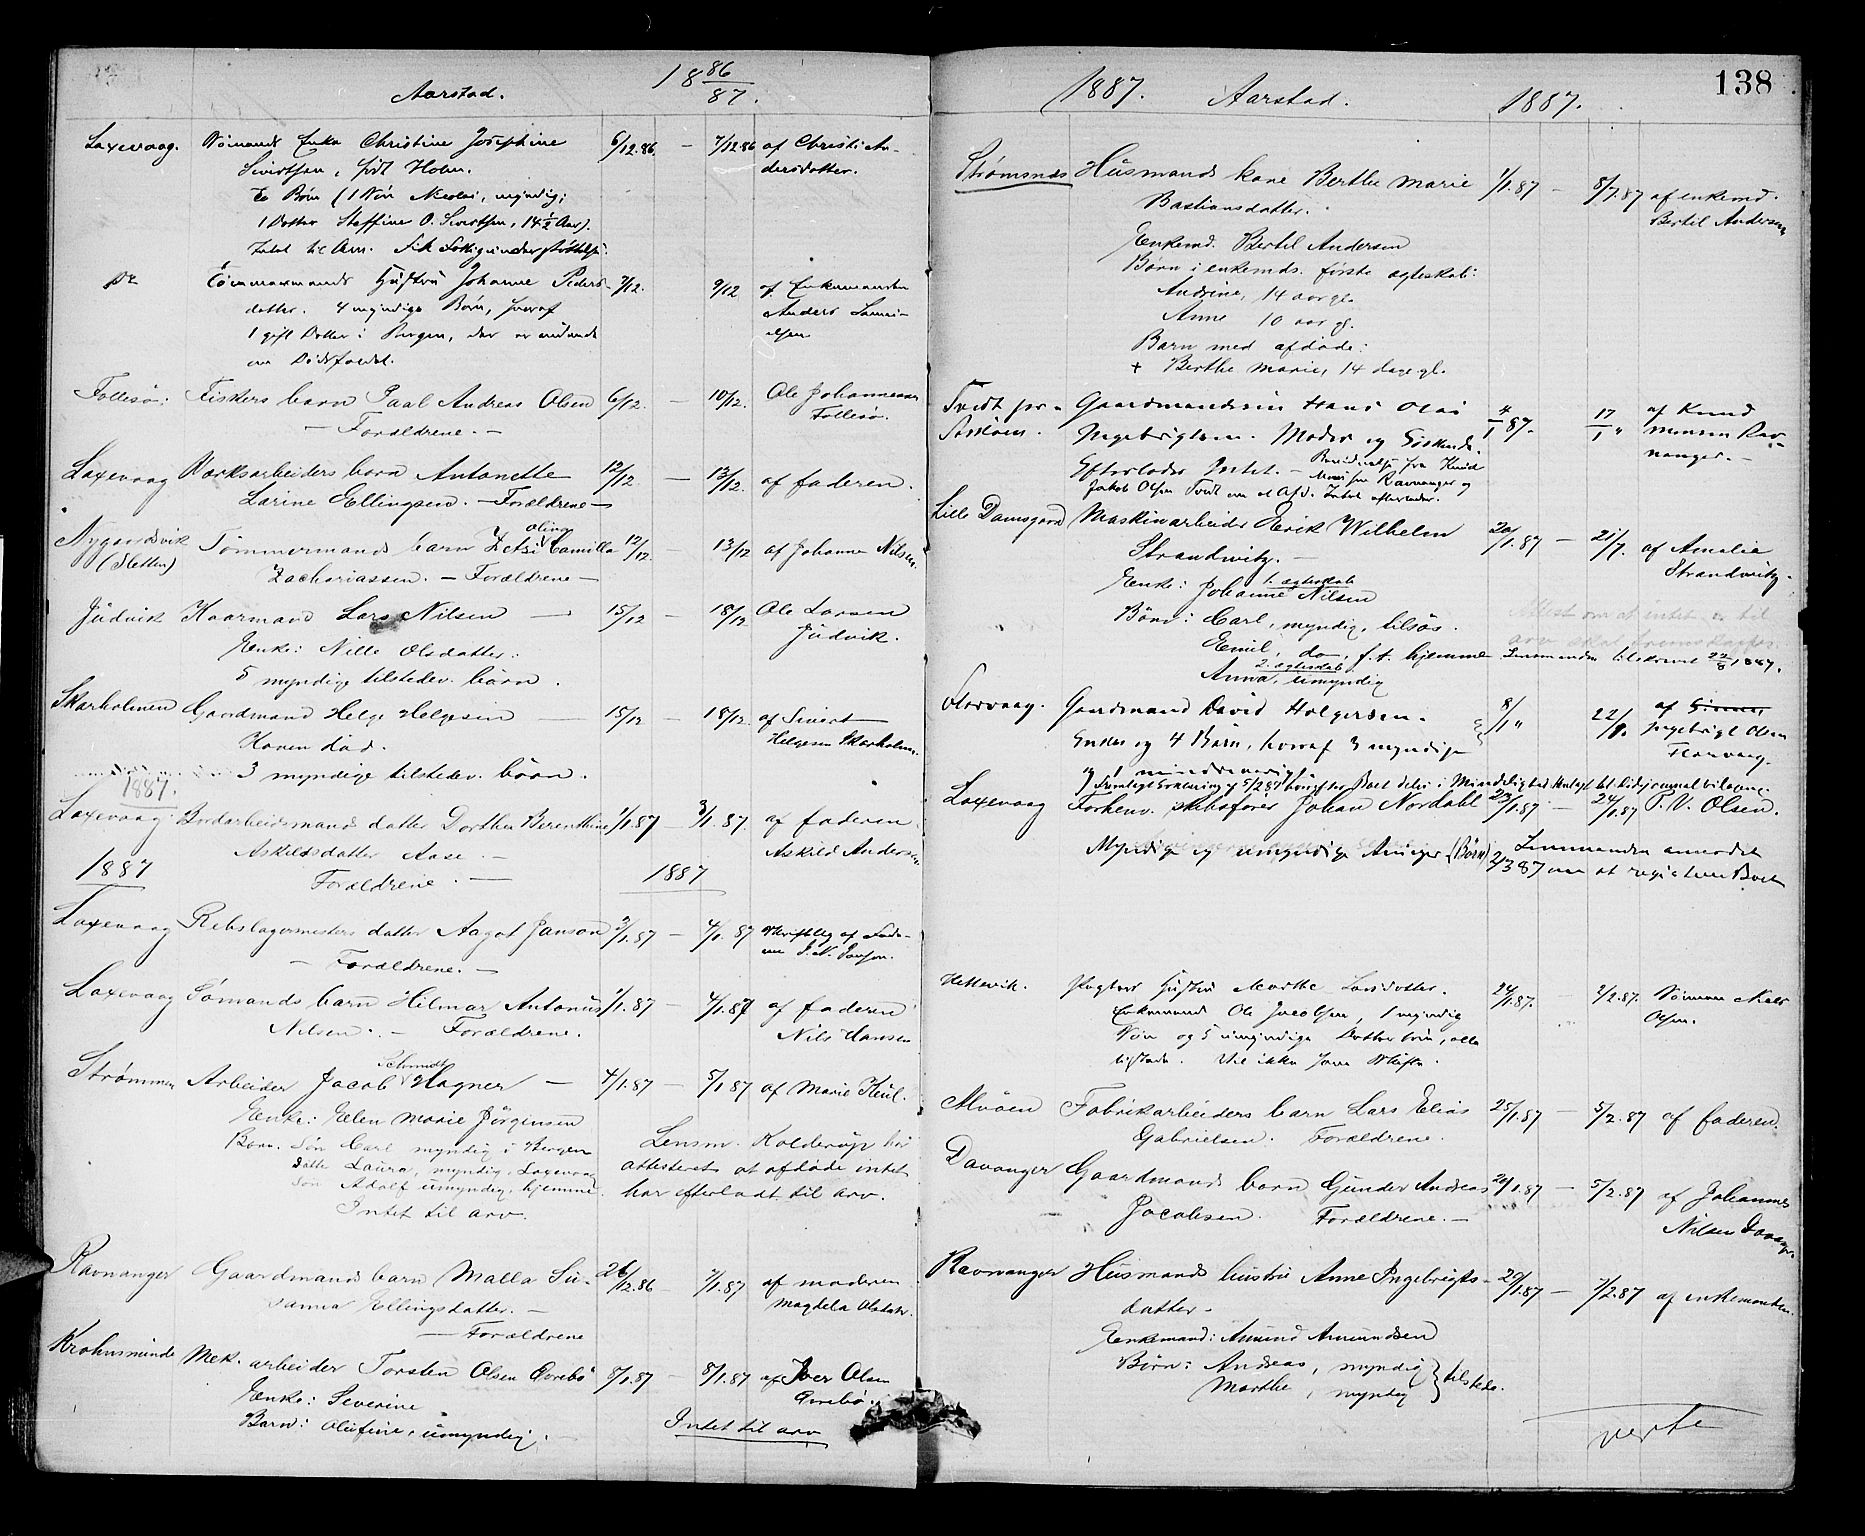 Aarstad.
18 86/87.
Laxevaag. Sömands Enke Christine Josephine 6/12.86. — 7/12.86 af Christi An-
Sivertsen, født Holm. dersdatter.
2 Børn (1 Søn Nicolai, myndig;
1 Datter Steffine O. Sivertsen, 14½ Aar).
Intet til Arv. Fik Fattigunderstøttelse.
Do Tömmermands Hustru Johanne Peders- 7/12. 9/12 af Enkemanden
datter. 4 myndige Børn, hvoraf Anders Samu-
1 gift Datter i Bergen, der er
om Dødsfaldet.
Follesö: Fiskers barn Paal Andreas Olsen 6/12. — 10/12. Ole Johannesen
— Forældrene. — Follesö.
Laxevaag Værksarbeiders barn Antonette 12/12 — 13/12. af faderen.
Larine Ellingsen. — Forældrene —
Nygaardsvik Tømmermands barn Zetsi Olina Camilla 12/12. — 13/12 af Johanne Nilsen.
(Sletten) Zachariassen. — Forældrene —
Judvik Kaarmand Lars Nilsen — 15/12 — 18/12 Ole Larsen
Enke: Nille Olsdatter: Judvik.
5 myndige tilstedev. børn.
Skarholmen Gaardmand Helge Helgesen 15/12 — 18/12. af Sivert
Konen död. Helgesen Skarholmen.
3 myndige tilstedev. börn.
1887.
Laxevaag Jordarbeidsmands datter Dorthea Berenthine 1/1.87 — 3/1.87. af faderen
Askildsdatter Aase. — Askild Andersen
1887 Forældrene. — 1887
Laxevaag Rebslagermesters datter Aagot Janson 3/1.87 — 4/1.87 Skriftlig af Fade-
— Forældrene. — ren J. N. Janson.
Laxevaag Sömands barn Hilmar Antonius 1/1.87 — 4/1.87 af faderen
Nilsen. — Forældrene. Nils Hansen
Strømmen Arbeider Jacob Schmidt Hagner — 4/1.87 — 5/1 87 af Marie Keul.
Enke: Elen Marie Jörgensen
Børn. Søn Carl myndig i Bergen Lensm. Kolderup har
Datte Laura, myndig, Laxevaag attesteret at afdøde intet
Søn Adolf umyndig, hjemme. har efterladt til arv.
Intet til arv.
Ravnanger Gaardmands barn Malla Su- 26/12.86 — 7/1.87 af moderen
sanna Ellingsdatter. — Magdela Olsdatr.
— Forældrene
Krohnsminde Mek. arbeider Torsten Olsen Overbö 8/1.87 — 8/1.87 af Iver Olsen
Enke: Severine Overbö.
Barn: Olufine, umyndig. Intet til arv
138
1887. Aarstad. 1887.
Strømsnes Husmands kone Berthe Marie 1/1.87 — 8/7.87 af enkemd.
Bastiansdatter. Bertil Andersen
Enkemd. Bertil Andersen
Børn i enkemds. første egteskab:
Andrine, 14 aar gl.
Anne 10 aar gl.
Barn med afdøde:
+ Berthe Marie, 14 dage gl.
Tvedt paa Gaardmandssøn Hans Olai 4/1 87. 17/1 " af Knud
Askøen. Ingebrigtsen. Moder og Søskende. Monsen Rav-
Efterlader Intet. — Bevidnelse fra Knud nanger. —
Monsen Ravnanger og
Jakob Olsen Tvedt om at Afd. Intet efterlader.
Lille Damsgaard Maskinarbeider Erik Wilhelm 20/1.87 — 21/7. af Amalie
Strandwitz. — Strandwitz.
Enke: Johanne Nilsen
1. egteskab
Børn: Carl, myndig, tilsøs. Attest om at intet er til
Emil, do, f.t. hjemme arv skal fremskaffes.
2. egteskab Lensmanden tilskrevet 22/8 1887.
Anna, umyndig
Florvaag. Gaardmand David Holgersen. 8/1 " 22/1. af
Enke og 4 Børn, hvoraf 3 myndige Ingebrigt Olsen
og 1 mindreaarigt. Florvaag.
Laxevaag Forhenv. skibsfører Johan Nordahl 23/1.87 — 24/1.87 T. V. Olsen.
Myndige og umyndige Arvinger (Børn) Lensmanden anmodet
2/3 87 om at registrere Boet
Hettevik. Hustru Marthe Larsdatter. 24/1.87. — 2/2.87. Sönnen
Enkemand Ole Jacobsen, 1 myndig Olsen.
Søn og 5 umyndige Døttre børn, alle
tilstede. Vil ikke have Skifte.
Alvöen Fabrikarbeiders barn Lars Elias 25/1.87 — 5/2.87 af faderen.
Gabrielsen. Forældrene.
Davanger Gaardmands barn Gunder Andreas 29/1.87 — 5/2.87 af Johannes
Jacobsen. Forældrene. — Nilsen Davanger.
Ravnanger Husmands hustru Anne Ingebrigts- 29/1.87 — 7/2.87 af enkemanden.
datter —
Enkemand: Amund Amundsen
Børn: Andreas, myndig } tilstede.
Marthe, myndig
verte